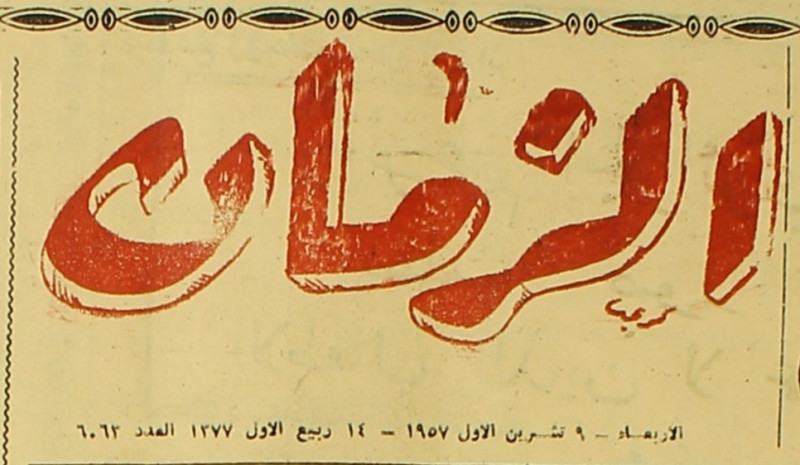 الزمان
الاربعاء - ٩ تشرين الاول ١٩٥٧ - ١٤ ربيع الاول ١٣٧٧ العدد ٦٠٦٣